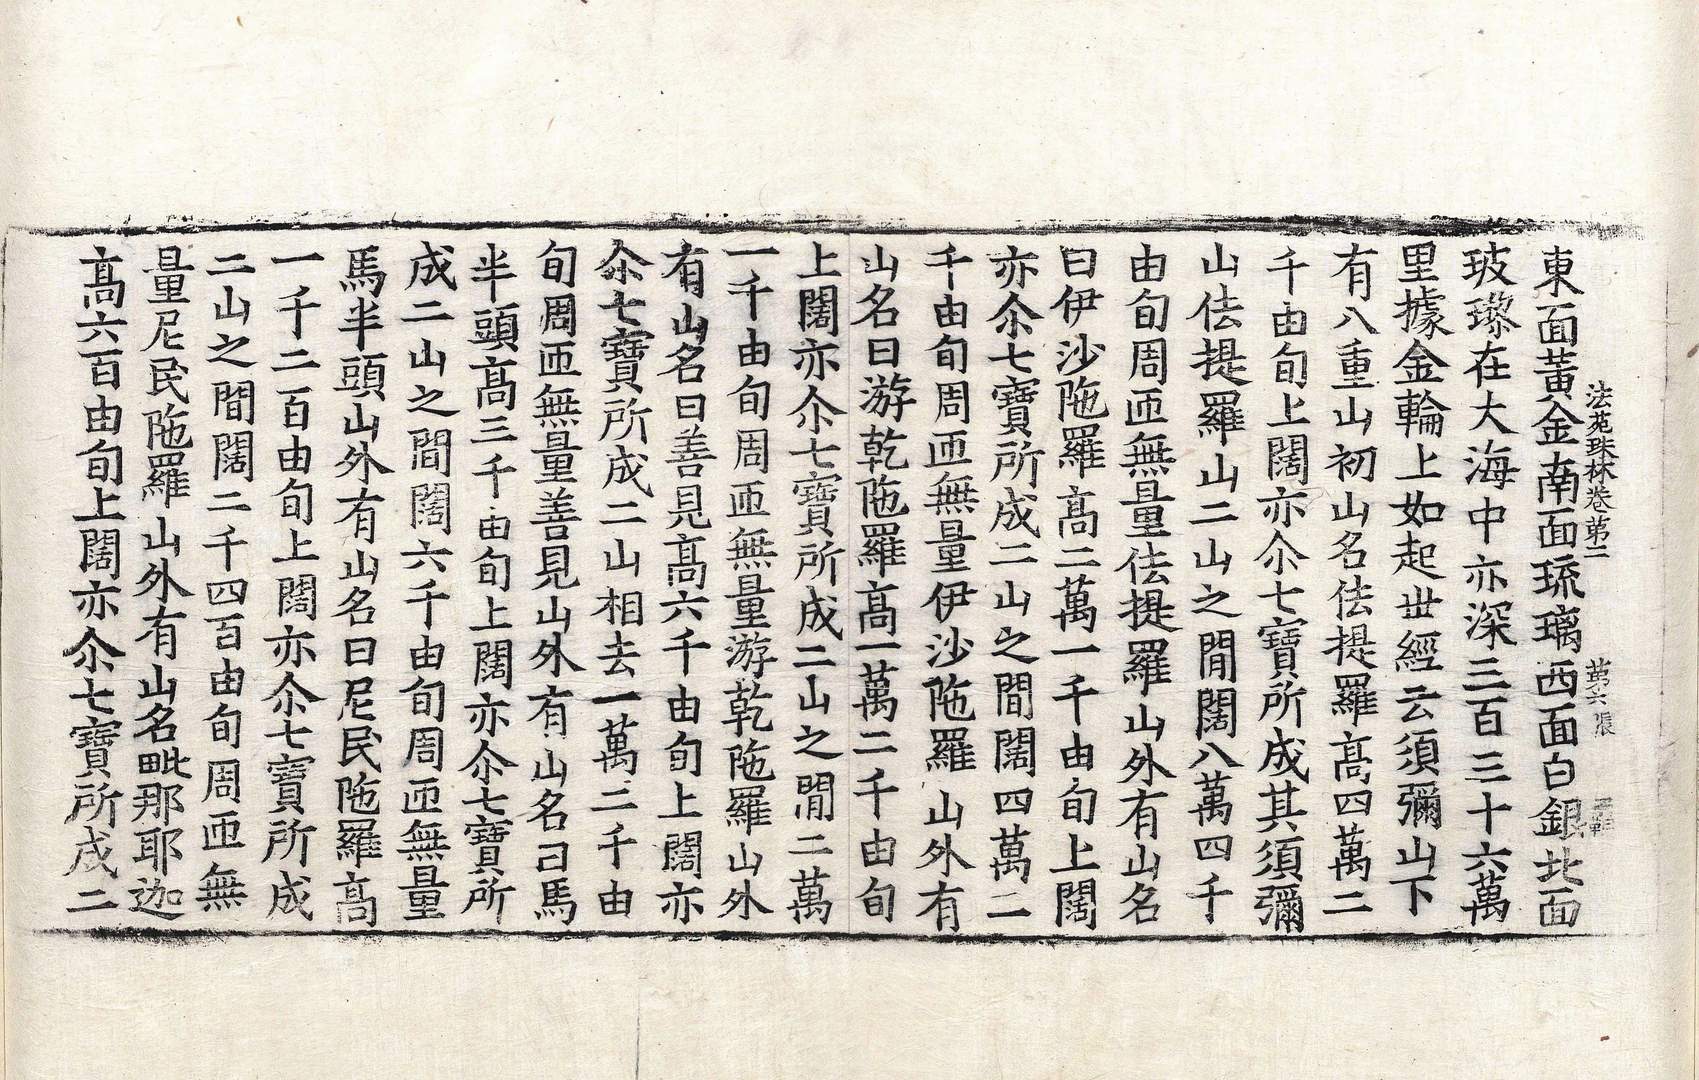 法苑珠林卷第二 第六張
東面黃金南面琉璃西面白銀北面
玻瓈在大海中亦深三百三十六萬
里據金輪上如起世經云須彌山下
有八重山初山名佉提羅髙四萬二
千由旬上闊亦尒七寶所成其須彌
山佉提羅山二山之閒闊八萬四千
由旬周匝無量佉提羅山外有山名
曰伊沙陁羅髙二萬一千由旬上闊
亦尒七寶所成二山之閒闊四萬二
千由旬周匝無量伊沙陁羅山外有
山名曰游乾陁羅髙一萬二千由旬
上闊亦尒七寶所成二山之閒二萬
一千由旬周匝無量游乾陁羅山外
有山名曰善見髙六千由旬上闊亦
尒七寶所成二山相去一萬二千由
旬周匝無量善見山外有山名曰馬
半頭髙三千由旬上闊亦尒七寶所
成二山之閒闊六千由旬周匝無量
馬半頭山外有山名曰尼民陁羅髙
一千二百由旬上闊亦尒七寶所成
二山之閒闊二千四百由旬周匝無
量尼民陁羅山外有山名毗那耶迦
髙六百由旬上闊亦尒七寶所成二